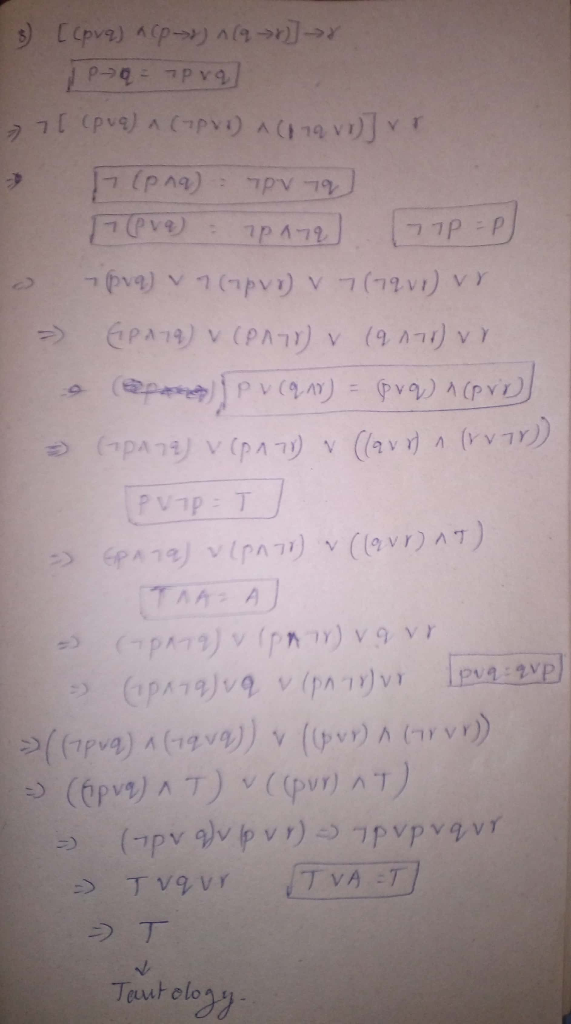 8) [(p∨q) ∧(p→r) ∧(q→r)]→r
p→q = ¬p∨q
⇒ ¬[ (p∨q) ∧ (¬p∨r) ∧ (¬q∨r)] ∨ r
⇒ ¬(p∧q) : ¬p∨ ¬q
¬(p∨q) : ¬p∧¬q ¬¬p = p
⇒ ¬(p∨q) ∨ ¬(¬p∨r) ∨ ¬(¬q∨r) ∨ r
⇒ (¬p∧¬q) ∨ (p∧¬r) ∨ (q∧¬r) ∨ r
⇒ p∨(q∧r) = (p∨q) ∧ (p∨r)
⇒ (¬p∧¬q) ∨ (p∧¬r) ∨ ((q∨r) ∧ (r∨¬r))
p∨¬p = T
⇒ (¬p∧¬q) ∨ (p∧¬r) ∨ ((q∨r) ∧T)
T∧A = A
⇒ (¬p∧¬q) ∨ (p∧¬r) ∨ q ∨ r
⇒ (¬p∧¬q)∨q ∨ (p∧¬r)∨r p∨q=q∨p
⇒((¬p∨q) ∧ (¬q∨q)) ∨ ((p∨r) ∧ (¬r∨r))
⇒ ((¬p∨q) ∧ T) ∨ ((p∨r) ∧T)
⇒ (¬p∨q)∨(p∨r) ⇒ ¬p∨p∨q∨r
⇒ T∨q∨r T∨A =T
⇒ T
↓
Tautology.